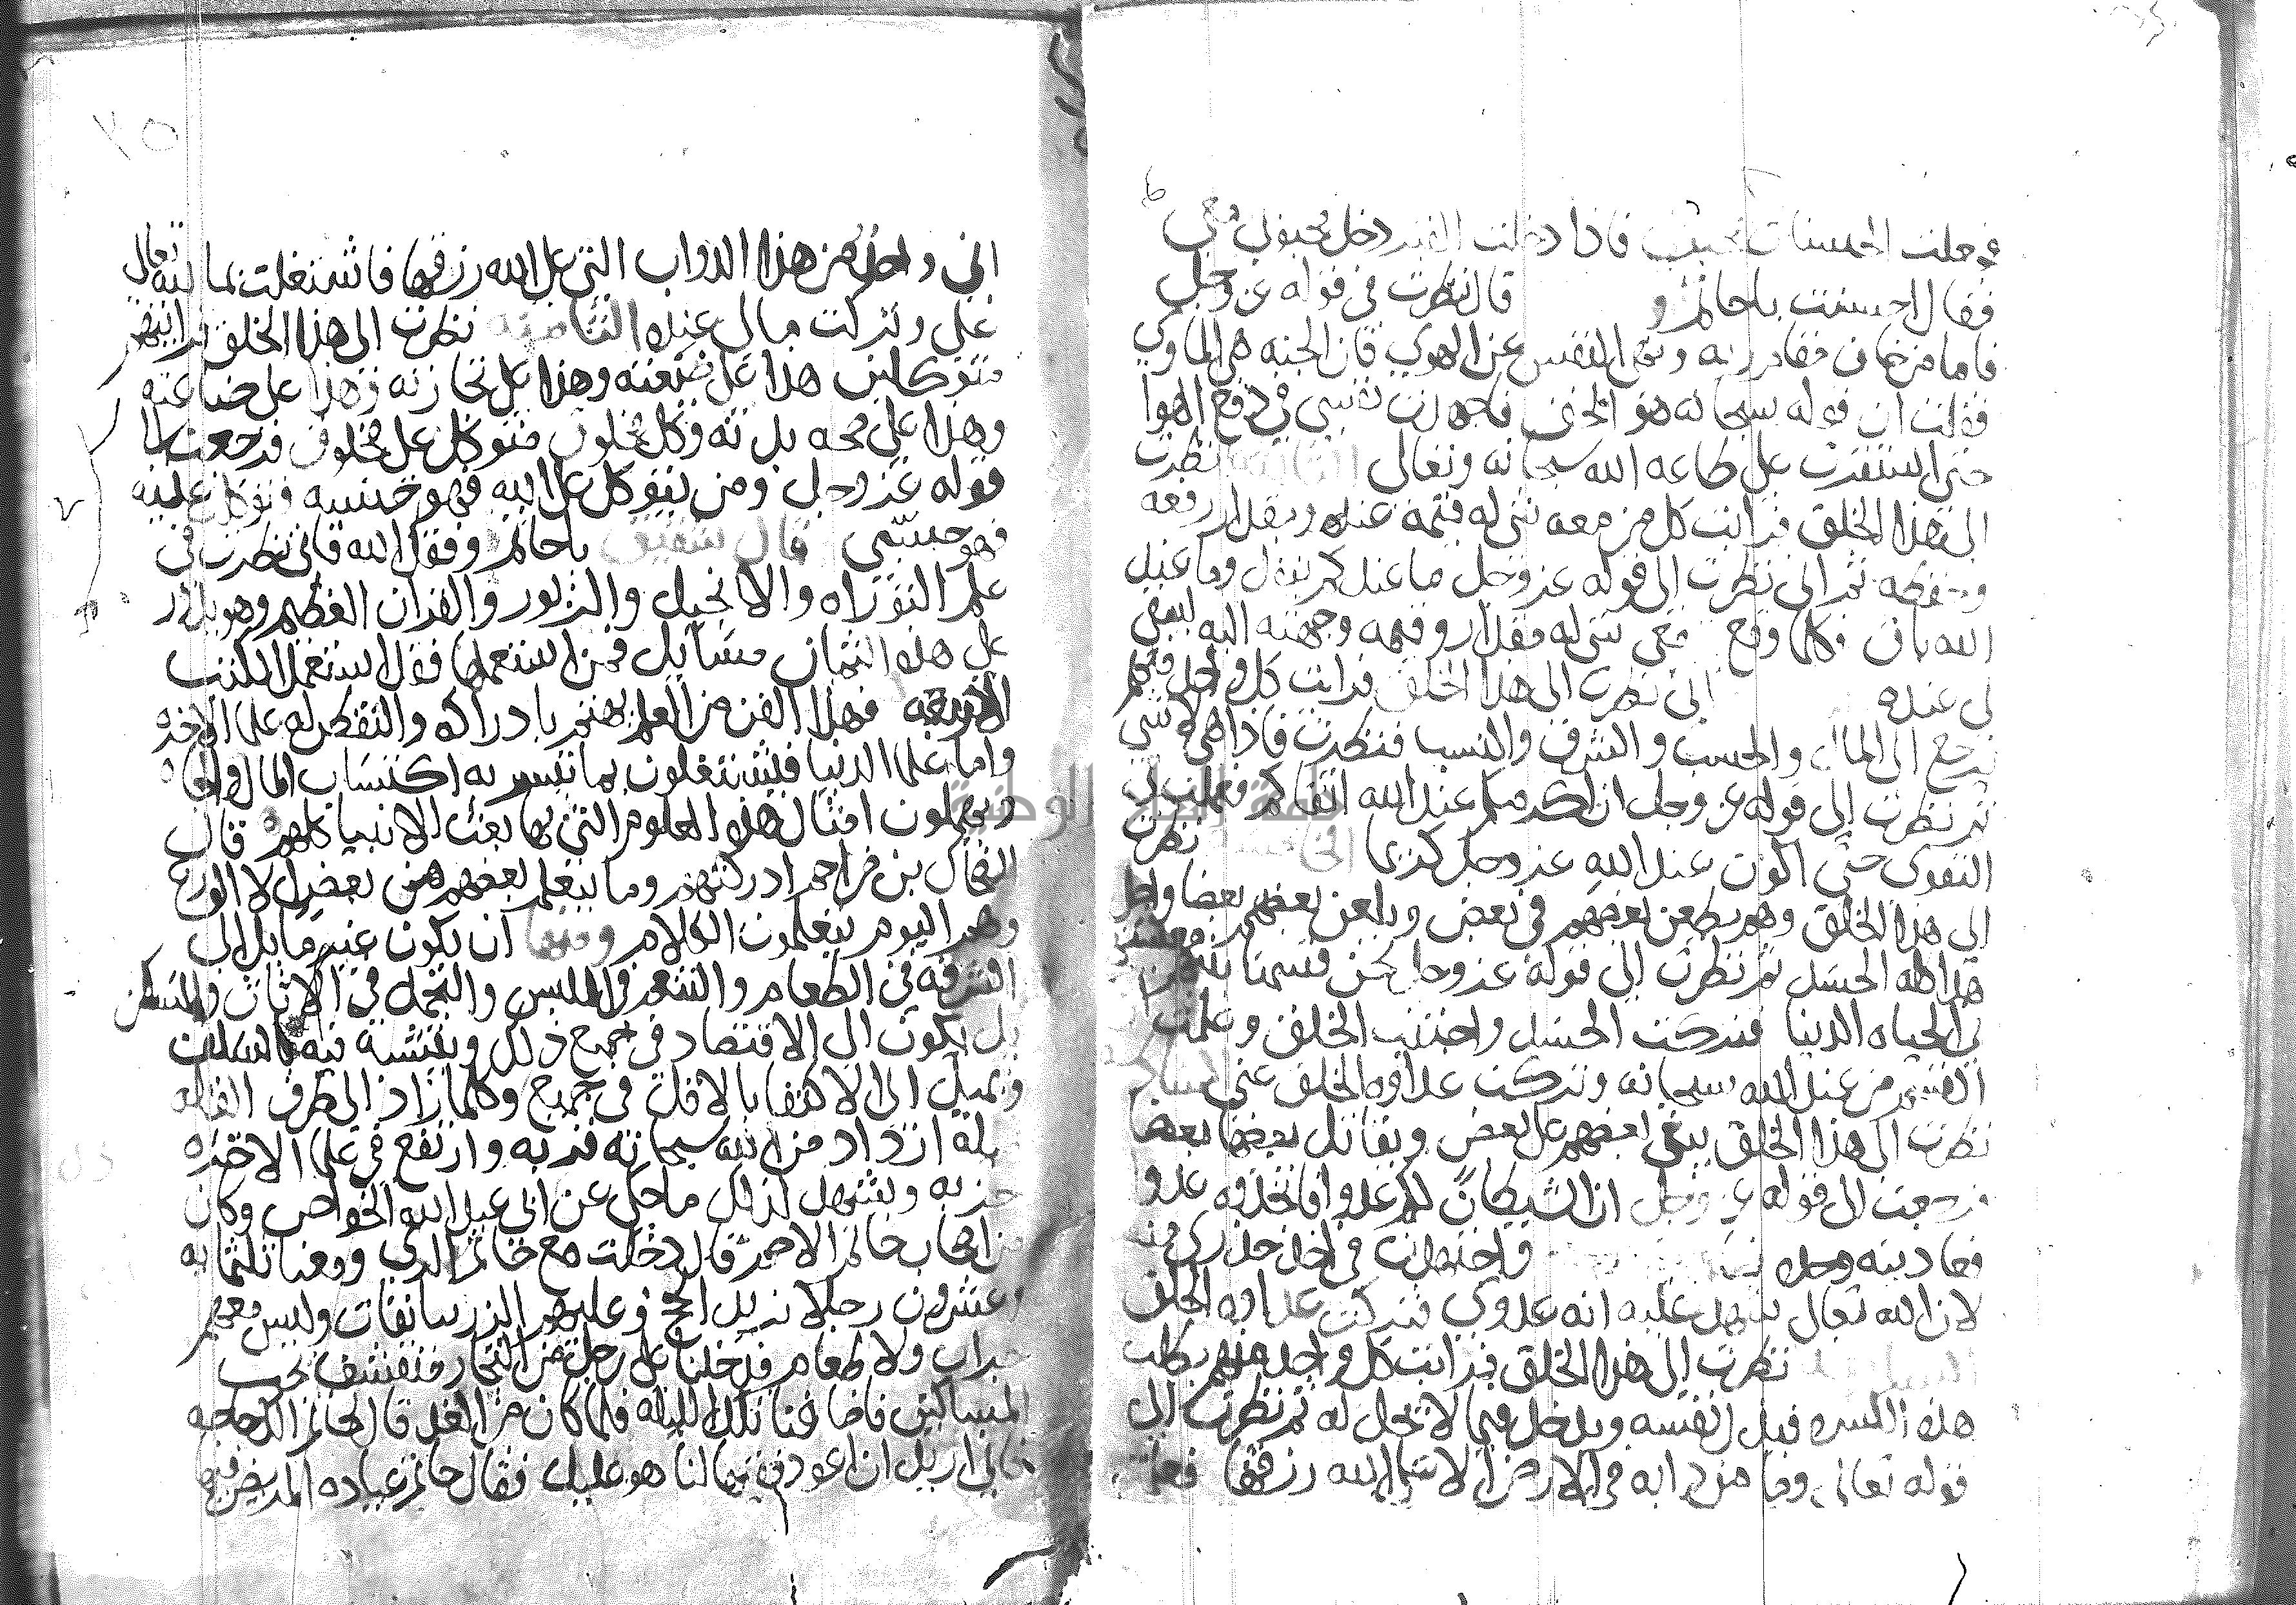 فجعلت الحسنات محبوبي فاذا دخلت القبر دخل محبوبي معي
فقال احسنت ياحاتم و قال نظرت في قوله عز وجل
فاما من خاف مقام ربه ونهى النفس عن الهوي فان الجنه هي الماوي
فقلت ان قوله سبحانه هو الحق فاجهدت نفسي في دفع الهوا
حتى استقرت على طاعه الله سبحانه وتعالى نظرت
الى هذا الخلق فرايت كل من معه شي له قيمه عنده ومقدار رفعه
وحفظه ثم اني نظرت الى قوله عز وجل ما عندكم ينفد وما عند
الله باق فكلما وقع معي شي له مقدار وقيمه وجهته اليه ليبقى
لي عنده اني نظرت الى هذا الخلق فرايت كل واحد منهم
يرجع الى المال والحسب والشرف والنسب فنظرت فاذا هي لا شي
ثم نظرت الى قوله عز وجل ان اكرمكم عند الله اتقاكم فعملت في
التقوى حتى اكون عند الله عز وجل كريما الخامسه نظرت
الى هذا الخلق وهم يطعن بعضهم في بعض ويلعن بعضهم بعضا واصل
هذا كله الحسد ثم نظرت الى قوله عز وجل نحن قسمنا بينهم معيشتهم
في الحياه الدنيا فتركت الحسد واجتنب الخلق وعلمت
القسم من عند الله سبحانه وتركت عداوه الخلق عني
نظرت الى هذا الخلق يبغي بعضهم على بعض ويقاتل بعضها بعضا
فرجعت الى قوله عز وجل ان الشيطان لكم عدو فاتخذوه عدو
فعاديته وحده واجتهدت في اخذ حذري منه
لان الله تعالى شهد عليه انه عدوي فتركت عداوه الخلق
نظرت الى هذا الخلق فرايت كل واحد منهم يطلب
هذه الكسره فيذل نفسه ويدخل فيما لا يحل له ثم نظرت الى
قوله تعالى وما من دابه في الارض الا على الله رزقها فعلمت
اني واحد من هذا الدواب التي على الله رزقها فاشتغلت بما لله تعالى
علي وتركت مالي عنده الثامنه نظرت الى هذا الخلق فرايتهم
متوكلين هذا على ضيعته وهذا على تجارته وهذا على صناعته
وهذا على صحه بدنه وكل مخلوق متوكل على مخلوق فرجعت الى
قوله عز وجل ومن يتوكل على الله فهو حسبه فتوكلت عليه
فهو حسبي قال شقيق ياحاتم وفقك الله فاني نظرت في
علم التوراه والانجيل والزبور والفرقان العظيم وهو يدور
على هذه الثمان مسايل فمن استعملها فقد استعمل الكتب
الاربعه فهذا الفن من العلم يهتم بادراكه والتفطن له علما الاخره
واما علما الدنيا فيشتغلون بما تيسر به اكتساب المال والجاه
ويهملون امثال هذه العلوم التي بها بعث الانبيا كلهم قال
الضحاك بن مزاحم ادركتهم وما يتعلم بعضهم من بعض الا الورع
وهم اليوم يتعلمون الكلام ومنها ان يكون غير مايل الى
الترفه في الطعام والتنعم في الملبس والتجمل في الاثاث والمسكن
بل يكون الى الاقتصاد في جميع ذلك ويتشبه فيه بالسلف
ويميل الى الاكتفا بالاقل في جميع وكلما زاد الى طرف القله
ميله ازداد من الله سبحانه قربه وارتفع في علما الاخره
حزبه ويشهد لذلك ما حكي عن ابي عبد الله الخواص وكان
من اصحاب حاتم الاصم قال دخلت مع حاتم الري ومعنا ثلثمايه
وعشرون رجلا نريد الحج وعليهم الزرمانقات وليس معهم
جراب ولا طعام فدخلنا على رجل من التجار متقشف يحب
المساكين فاضافنا تلك الليله فلما كان من الغد قال لحاتم الك حاجه
فاني اريد ان اعود فقيها لنا هو عليل فقال حاتم عياده المريض فيها